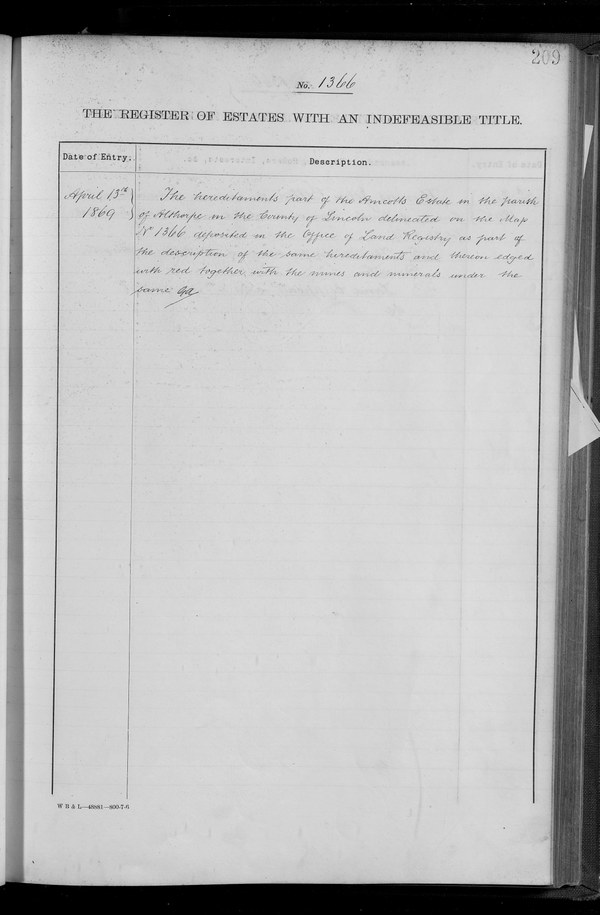 209
No. 1366
THE REGISTER OF ESTATES WITH AN INDEFEASIBLE TITLE.
Date of Entry.
Description.
April 13th
1869
The hereditaments part of the Amcotts Estate in the parish
of Althorpe in the County of Lincoln delineated on the Map
No 1366 deposited in the Office of Land Registry as part of
the description of the same hereditaments and thereon edged
with red together with the mines and minerals under the
same.
W B & L—46881—800-7-